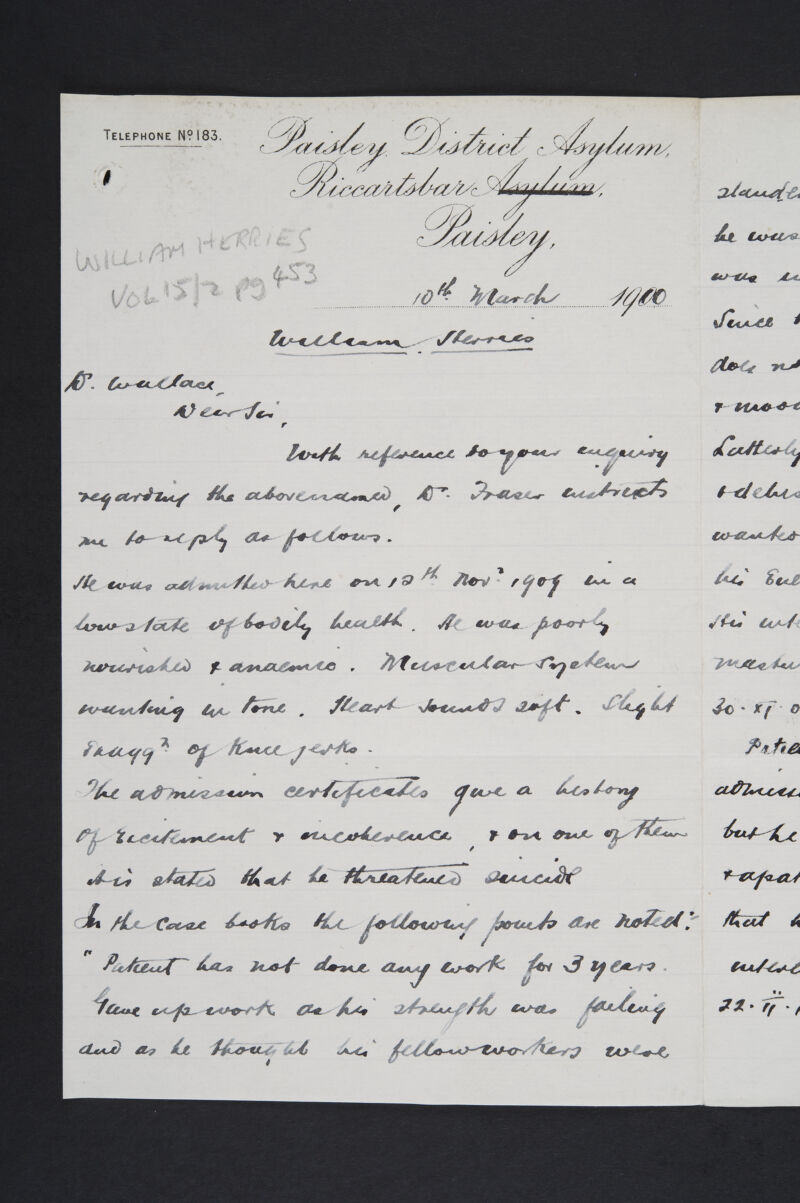 TELEPHONE Nº 183.
Paisley District Asylum,
Riccartsbar Asylum,
Paisley,
WILLIAM HERRIES
VOL 15/2 pg 453
10th March 1900
William Herries
Dr. Wallace,
Dear Sir,
With reference to your enquiry
regarding the abovenamed, Dr. Fraser instructs
me to reply as follows.
He was admitted here on 12th Novr 1909 in a
low state of bodily health. He was poorly
nourished & anaemic. Muscular system
wanting in tone. Heart sounds soft. Slight
Exaggn of Knee jerks.
The admission certificates give a history
of Excitement & incoherence, & on one of them
it is stated that he threatened suicide
In the case books the following points are noted:-
"Patient has not done any work for 3 years.
Gave up work as his strength was failing
and as he thought his fellow workers were
he was
was
Since
does
&
Latterly
&
wanted
his
His
30.XI.
admiss
but he
& apat
that
22.II.